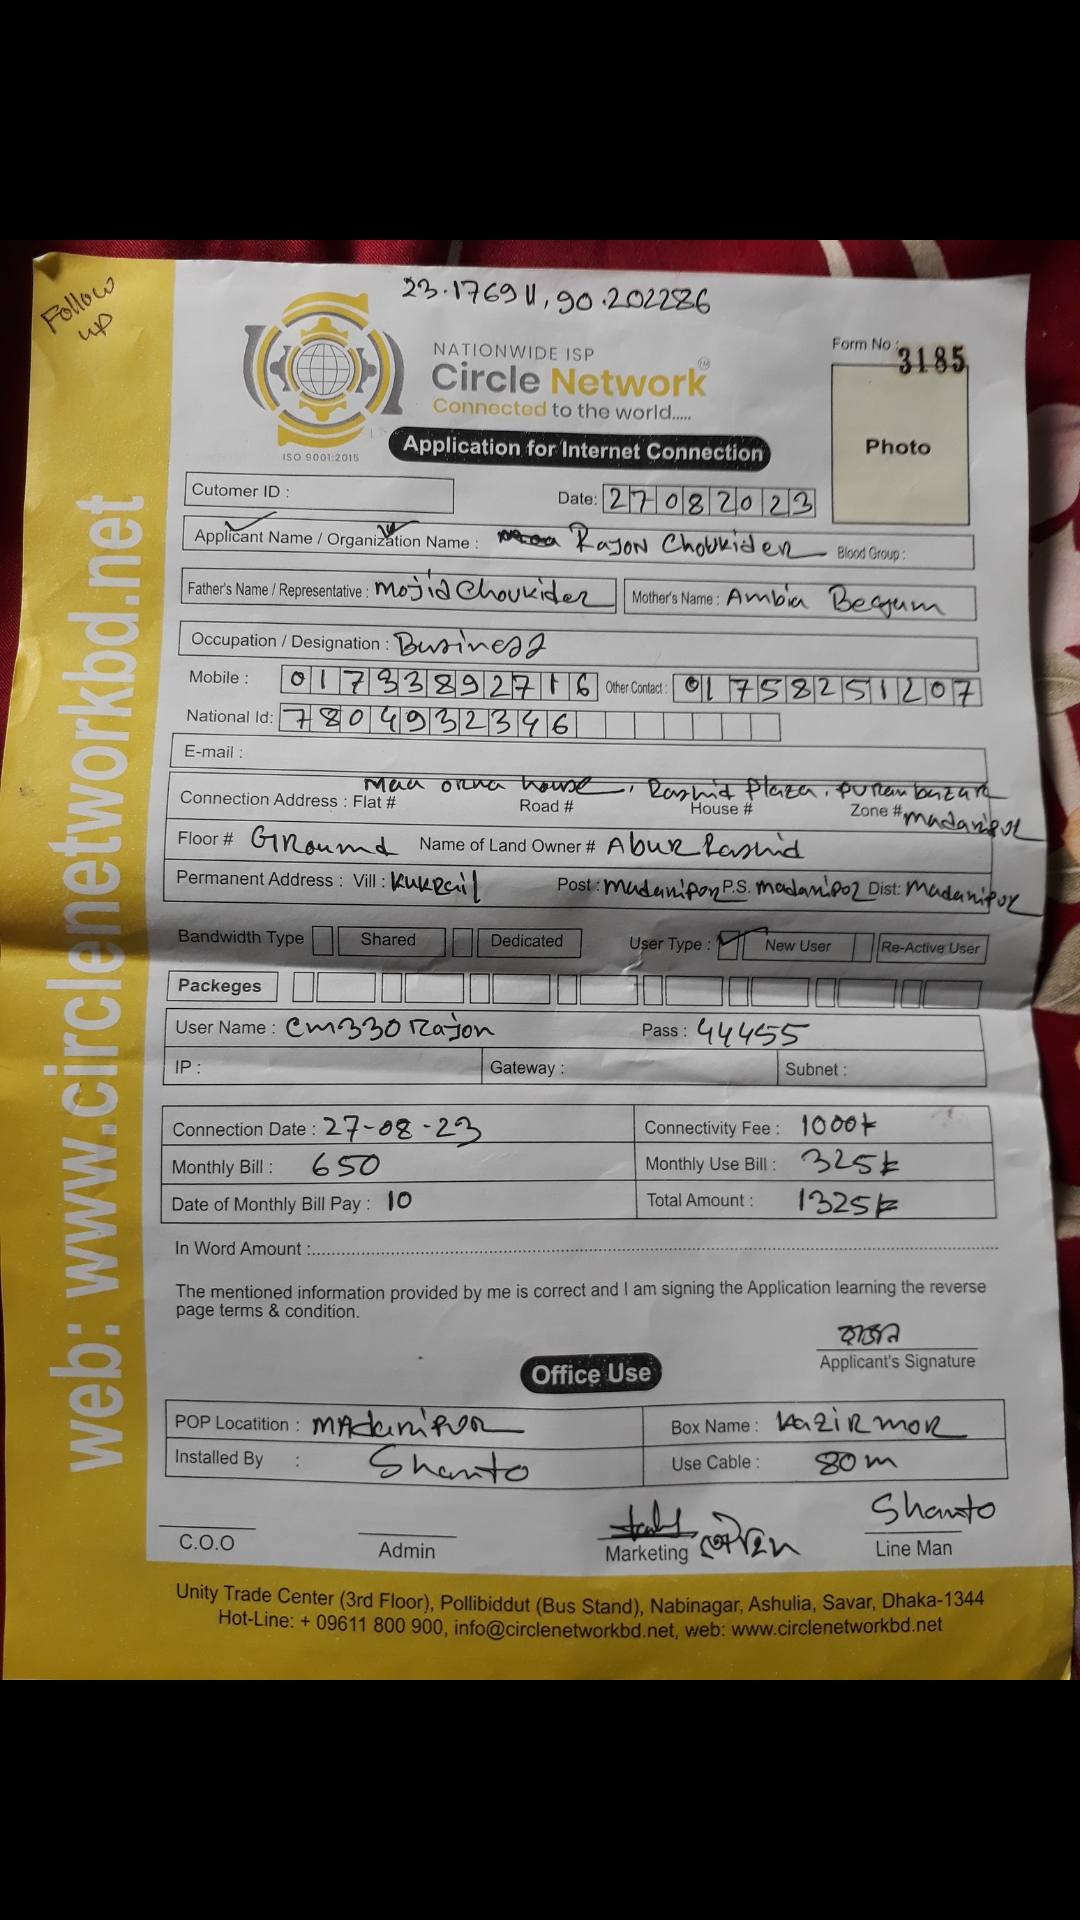 Follow
up
23.176911, 90.202286
NATIONWIDE ISP
Circle Network TM
Connected to the world.....
ISO 9001:2015
Application for Internet Connection
Form No : 3185
Photo
Cutomer ID :
Date: 27082023
Applicant Name / Organization Name : Rajon Choukider Blood Group :
Father's Name / Representative : Mojid Choukider Mother's Name : Ambia Begum
Occupation / Designation : Business
Mobile : 01733892716 Other Contact : 01758251207
National Id: 7804932346
E-mail :
maa orna house, Rashid Plaza, puran bazar
Connection Address : Flat # Road # House # Zone # madaripur
Floor # Ground Name of Land Owner # Abur Rashid
Permanent Address : Vill : Kukrail Post : madaripor P.S. madaripor Dist: Madaripur
Bandwidth Type Shared Dedicated User Type : New User Re-Active User
Packeges
User Name : cm330rajon Pass : 44455
IP : Gateway : Subnet :
Connection Date : 27-08-23 Connectivity Fee : 1000৳
Monthly Bill : 650 Monthly Use Bill : 325৳
Date of Monthly Bill Pay : 10 Total Amount : 1325৳
In Word Amount :
The mentioned information provided by me is correct and I am signing the Application learning the reverse
page terms & condition.
রাজন
Applicant's Signature
Office Use
POP Locatition : MAdaripur Box Name : Kazir mor
Installed By : Shanto Use Cable : 80m
Shanto
C.O.O Admin Marketing Line Man
Unity Trade Center (3rd Floor), Pollibiddut (Bus Stand), Nabinagar, Ashulia, Savar, Dhaka-1344
Hot-Line: + 09611 800 900, info@circlenetworkbd.net, web: www.circlenetworkbd.net
web: www.circlenetworkbd.net